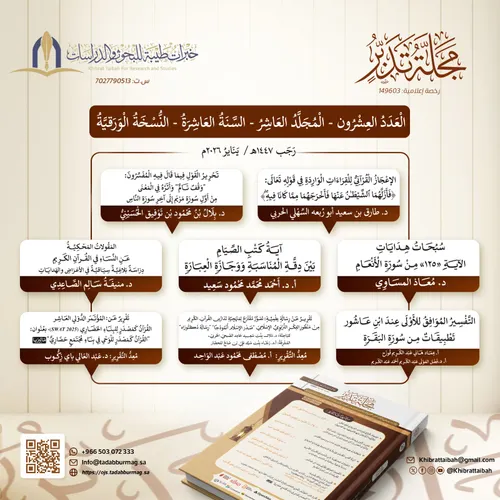 مجلة تدبر
رخصة إعلامية: 149603
خبرات طيبة للبحوث والدراسات
Khibrat Taibah for Research and Studies
س ت: 7027790513
العَدَدُ العِشْرُون - الْمُجَلَّدُ العَاشِرُ - السَّنَةُ العَاشِرَةُ - النُّسْخَةُ الْوَرَقِيَّةُ
رَجَب ١٤٤٧هـ / يَنَايَر ٢٠٢٦م
الإعْجَازُ القُرْآنِيُّ لِلْقِرَاءَاتِ الْوَارِدَةِ فِي قَوْلِهِ تَعَالَى:
﴿فَأَزَلَّهُمَا ٱلشَّيْطَٰنُ عَنْهَا فَأَخْرَجَهُمَا مِمَّا كَانَا فِيهِ﴾
د. طارق بن سعيد أبو ربعه السهلي الحربي
تَحْرِيرُ القَوْلِ فِيمَا قَالَ فِيهِ الْمُفَسِّرُونَ:
"وَقْفٌ تَامٌّ" وَأَثَرُهُ فِي الْمَعْنَى
مِنْ أَوَّلِ سُورَةِ مَرْيَمَ إِلَى آخِرِ سُورَةِ النَّاسِ
د. بِلَالُ بْنُ مَحْمُود بْنِ تَوْفِيق الْحُسَيْنِيُّ
سُبُحَاتُ هِدَايَاتِ
الآيَةِ «١٢٥» مِنْ سُورَةِ الْأَنْعَامِ
د. مُعَاذ المَسَاوِي
آيَةُ كَتْبِ الصِّيَامِ
بَيْنَ دِقَّةِ الْمُنَاسَبَةِ وَوَجَازَةِ الْعِبَارَةِ
أ. د. أَحْمَد مُحَمَّد مَحْمُود سَعِيد
المَقُولَاتُ المَحْكِيَّةُ
عَنِ النِّسَاءِ فِي الْقُرْآنِ الْكَرِيمِ
دِرَاسَةٌ بَلَاغِيَّةٌ سِيَاقِيَّةٌ فِي الْأَغْرَاضِ وَالْهِدَايَاتِ
د. منيفة سالم الصاعدي
التَّفْسِيرُ المُوَافِقُ لِلْأَوْلَى عِنْدَ ابْنِ عَاشُور
تَطْبِيقَاتٌ مِنْ سُورَةِ الْبَقَرَةِ
مُعِدُّ التَّقْرِيرِ: أ. مُصْطَفَى مَحْمُود عَبْد الْوَاحِد
تَقْرِيرٌ عَنِ: المُؤْتَمَرِ الدَّوْلِيِّ العَاشِرِ
مُعِدُّ التَّقْرِيرِ: د. عَبْد العَالِي بَاي زَكُّوب
+966 503 072 333
Info@tadabburmag.sa
https://ojs.tadabburmag.sa
Khibrattaibah@gmail.com
@Khibrattaibah